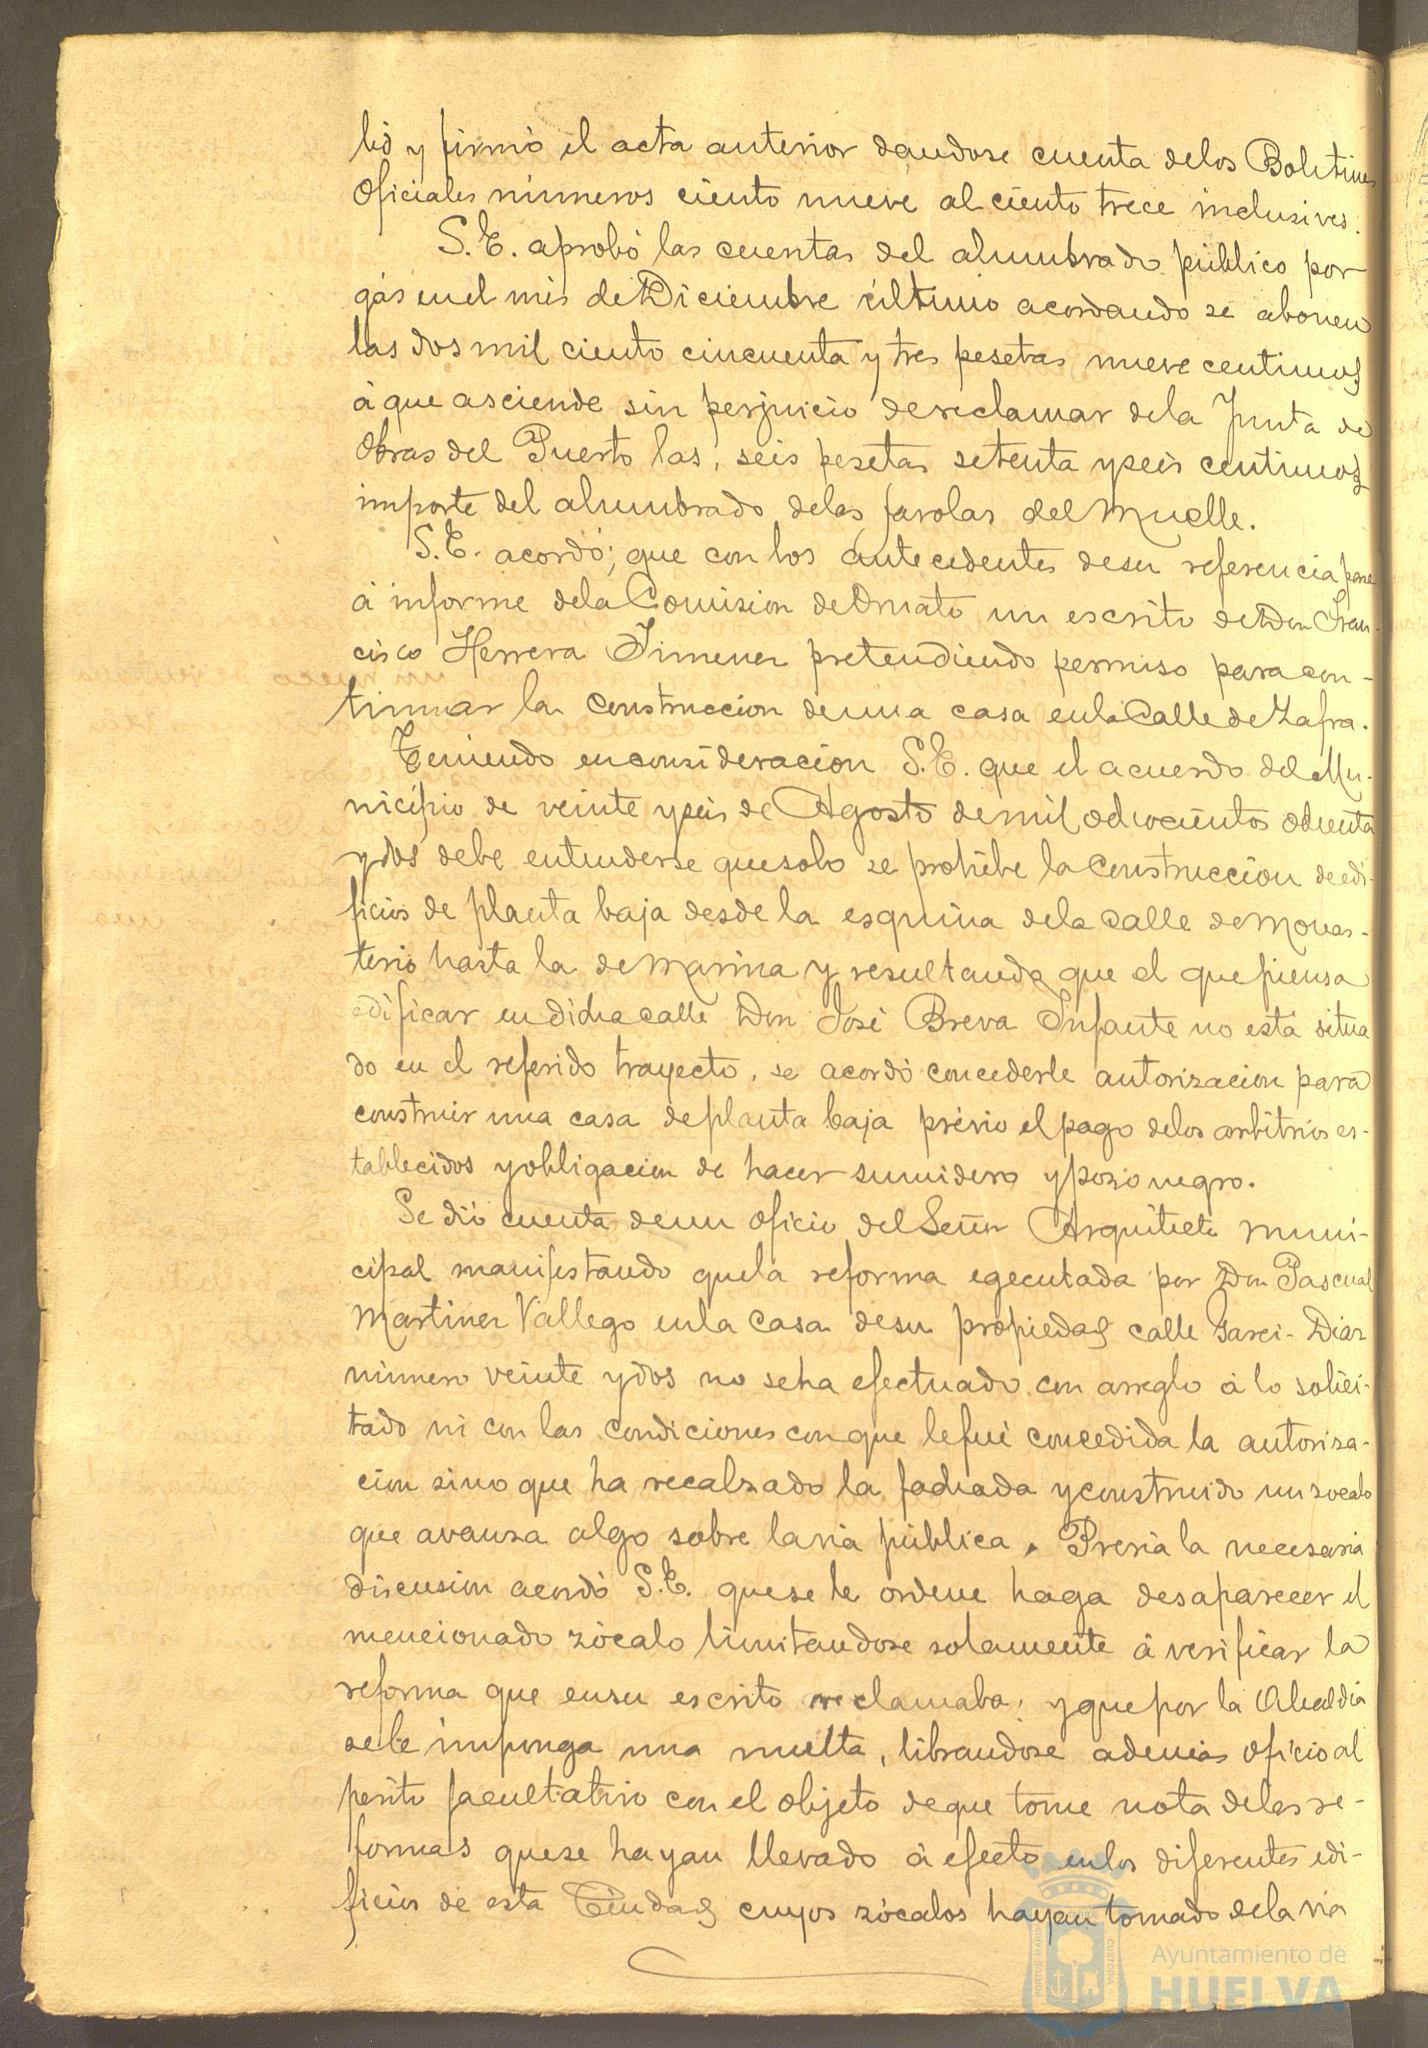 bó y firmó el acta anterior dandose cuenta delos Boletines
Oficiales números ciento nueve al ciento trece inclusives.
S.E. aprobó las cuentas del alumbrado público por
gás en el mes de Diciembre último acordando se abonen
las dos mil ciento cincuenta y tres pesetas nueve centimos
á que asciende sin perjuicio de reclamar dela Junta de
Obras del Puerto las, seis pesetas setenta y seis centimos
importe del alumbrado delas farolas del Muelle.
S.E. acordó; que con los antecedentes desu referencia pase
á informe dela Comision de Ornato un escrito de Don Fran-
cisco Herrera Jimenez pretendiendo permiso para con-
tinuar la construccion deuna casa enla Calle de Zafra.
Teniendo en consideracion S.E. que el acuerdo del Mu-
nicipio de veinte y seis de Agosto de mil ochocientos ochenta
y dos debe entenderse quesolo se prohibe la construccion de edi-
ficios de planta baja desde la esquina dela calle de Monas-
terio hasta la de Marina y resultando que el que piensa
edificar en dicha calle Don José Breva Infante no está situa
do en el referido trayecto, se acordó concederle autorizacion para
construir una casa de planta baja prévio el pago delos arbitrios es-
tablecidos y obligacion de hacer sumidero y pozo negro.
Se dió cuenta deun oficio del Señor Arquitecto muni-
cipal manifestando quela reforma egecutada por Don Pascual
Martinez Vallego enla casa desu propiedad calle Garci-Diaz
número veinte y dos no seha efectuado con arreglo á lo solici-
tado ni con las condiciones con que le fué concedida la autoriza-
cion sino que ha recalzado la fachada y construido un zocalo
que avanza algo sobre la via pública. Prévia la necesaria
discusion acordó S.E. quese le ordene haga desaparecer el
mencionado zócalo limitandose solamente á verificar la
reforma que ensu escrito reclamaba, y que por la Alcaldia
sele imponga una multa, librandose además oficio al
perito facultativo con el objeto deque tome nota delas re-
formas quese hayan llevado á efecto enlos diferentes edi-
ficios de esta Ciudad cuyos zócalos hayan tomado dela via
Ayuntamiento de
HUELVA